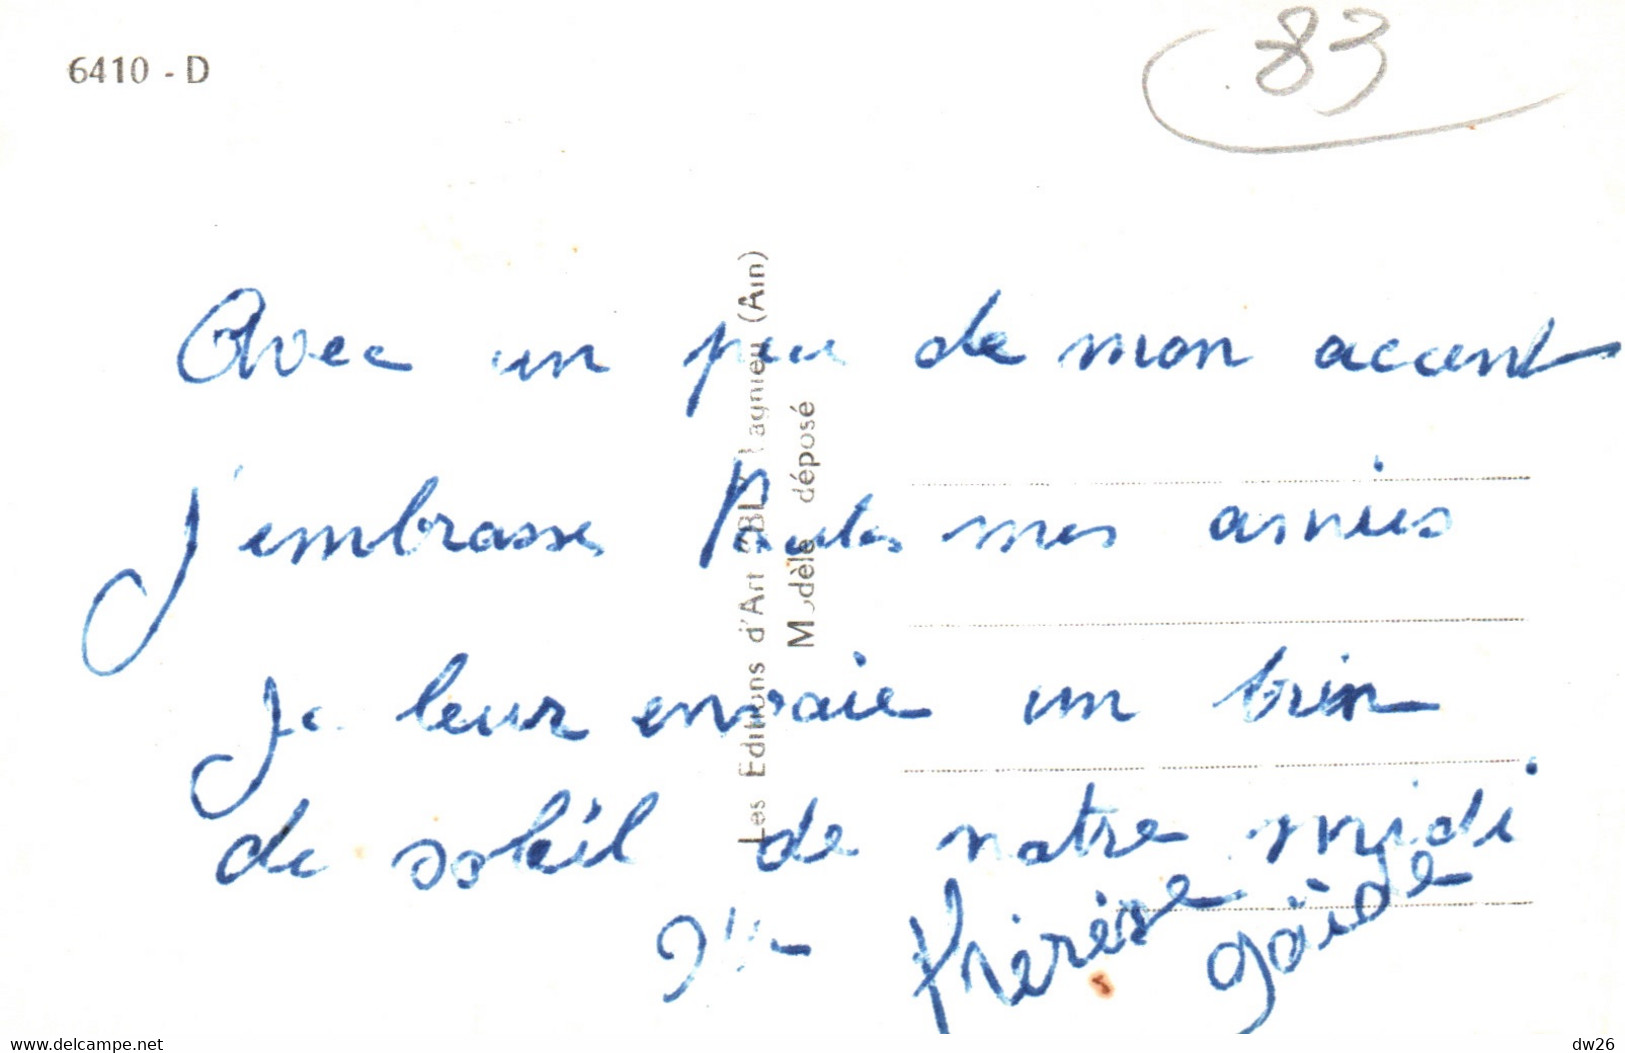 6410 - D
83
Avec un peu de mon accent
j'embrasse toutes mes amies
Je leur envoie un brin
de soleil de notre midi
Mlle Thérèse
Les Editions d'Art Lagnieu (Ain)
Modèle déposé
www.delcampe.net
dw26